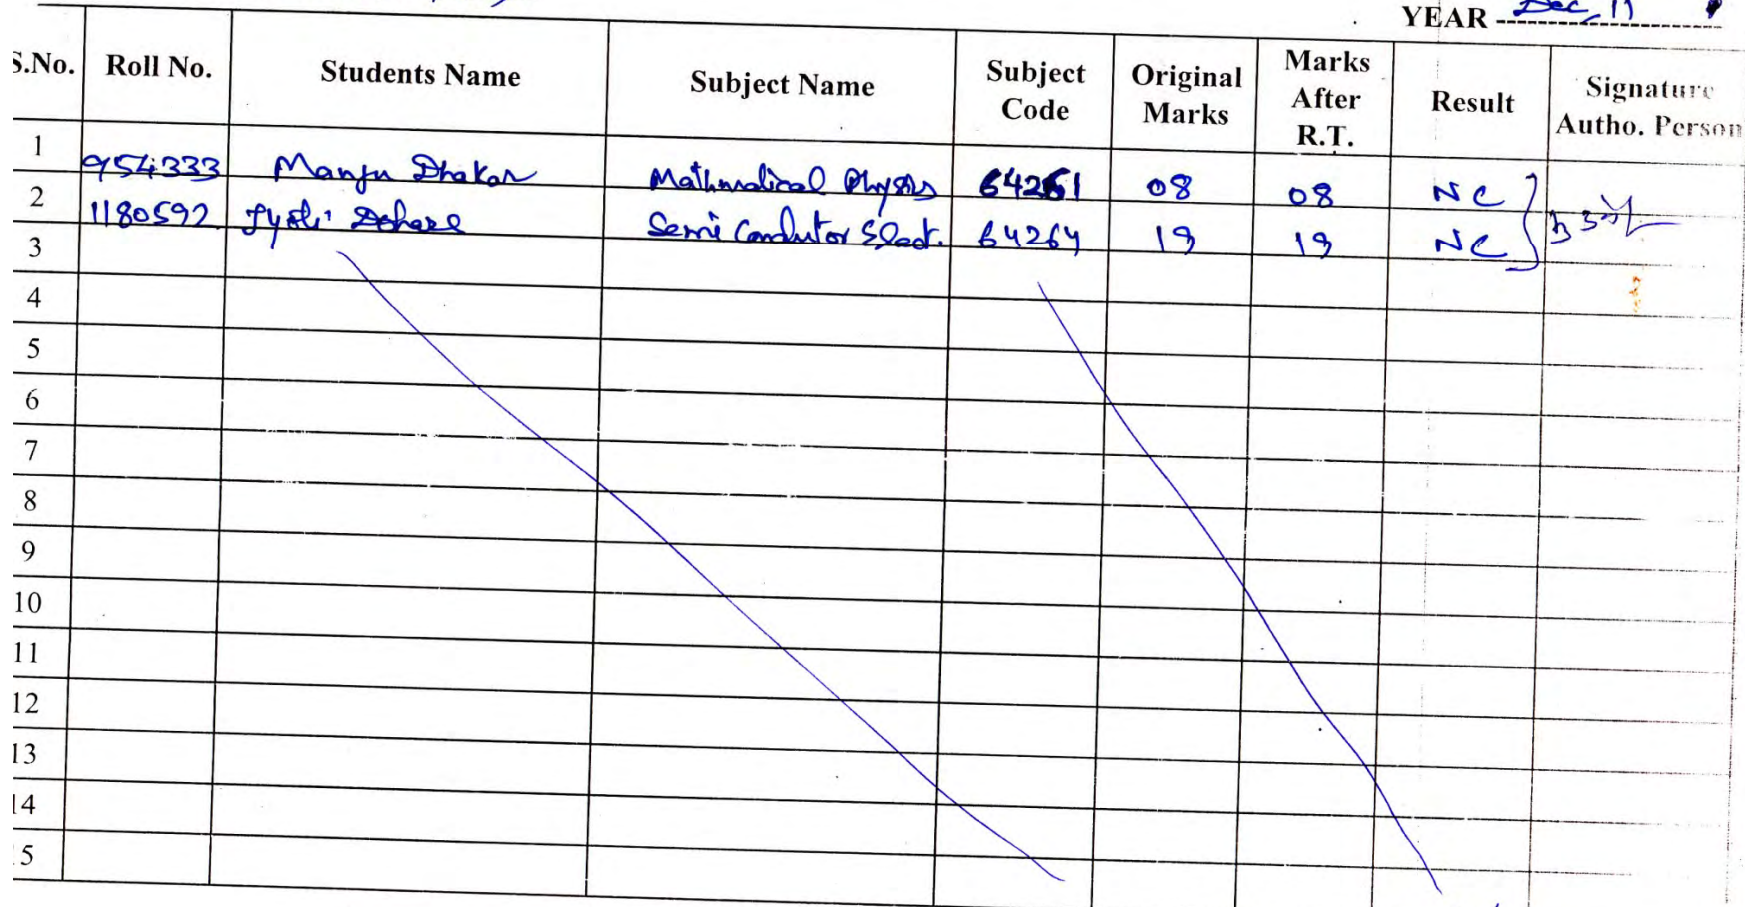 YEAR Dec, 11
S.No. Roll No. Students Name Subject Name Subject Code Original Marks Marks After R.T. Result Signature Autho. Person
1 954333 Manju Dhakar Mathmatical Physics 64261 08 08 NC
2 1180592 Jyoti Dohare Semi Condutor 64264 19 19 NC
3
4
5
6
7
8
9
10
11
12
13
14
5